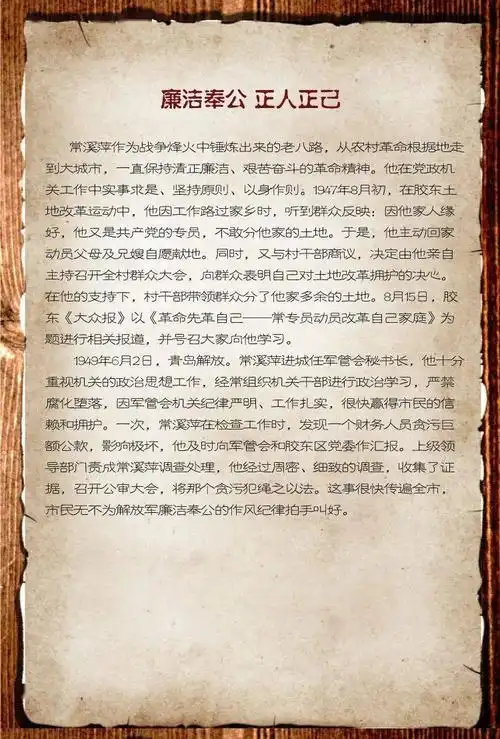 廉洁奉公 正人正己
常溪萍作为战争烽火中锤炼出来的老八路，从农村革命根据地走
到大城市，一直保持清正廉洁、艰苦奋斗的革命精神。他在党政机
关工作中实事求是、坚持原则、以身作则。1947年8月初，在胶东土
地改革运动中，他因工作路过家乡时，听到群众反映：因他家人缘
好，他又是共产党的专员，不敢分他家的土地。于是，他主动回家
动员父母及兄嫂自愿献地。同时，又与村干部商议，决定由他亲自
主持召开全村群众大会，向群众表明自己对土地改革拥护的决心。
在他的支持下，村干部带领群众分了他家多余的土地。8月15日，胶
东《大众报》以《革命先革自己——常专员动员改革自己家庭》为
题进行相关报道，并号召大家向他学习。
1949年6月2日，青岛解放。常溪萍进城任军管会秘书长，他十分
重视机关的政治思想工作，经常组织机关干部进行政治学习，严禁
腐化堕落，因军管会机关纪律严明、工作扎实，很快赢得市民的信
赖和拥护。一次，常溪萍在检查工作时，发现一个财务人员贪污巨
额公款，影响极坏，他及时向军管会和胶东区党委作汇报。上级领
导部门责成常溪萍调查处理，他经过周密、细致的调查，收集了证
据，召开公审大会，将那个贪污犯绳之以法。这事很快传遍全市，
市民无不为解放军廉洁奉公的作风纪律拍手叫好。